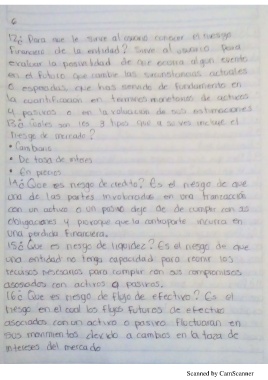 6
12¿ Para que le sirve al usuario conocer el riesgo
financiero de la entidad? Sirve al usuario para
evaluar la posibilidad de que ocurra algun evento
en el futuro que cambie las circunstancias actuales
o esperadas que han servido de fundamento en
la cuantificación en terminos monetarios de activos
y pasivos o en la valuación de sus estimaciones
13¿ Cuales son los 3 tipos que a su vez incluye el
riesgo de mercado?
• Cambiario
• De tasa de interes
• En precios
14¿ Que es riesgo de credito? Es el riesgo de que
una de las partes involucradas en una transacción
con un activo o un pasivo deje de de cumplir con sus
obligaciones y provoque que la contraparte incurra en
una perdida financiera.
15¿ Que es riesgo de liquidez? Es el riesgo de que
una entidad no tenga capacidad para reunir los
recursos necesarios para cumplir con sus compromisos
asociados con activos o pasivos.
16¿ Que es riesgo de flujo de efectivo? Es el
riesgo en el cual los flujos futuros de efectivo
asociados con un activo o pasivo fluctuaran en
sus movimientos debido a cambios en la tasa de
intereses del mercado
Scanned by CamScanner